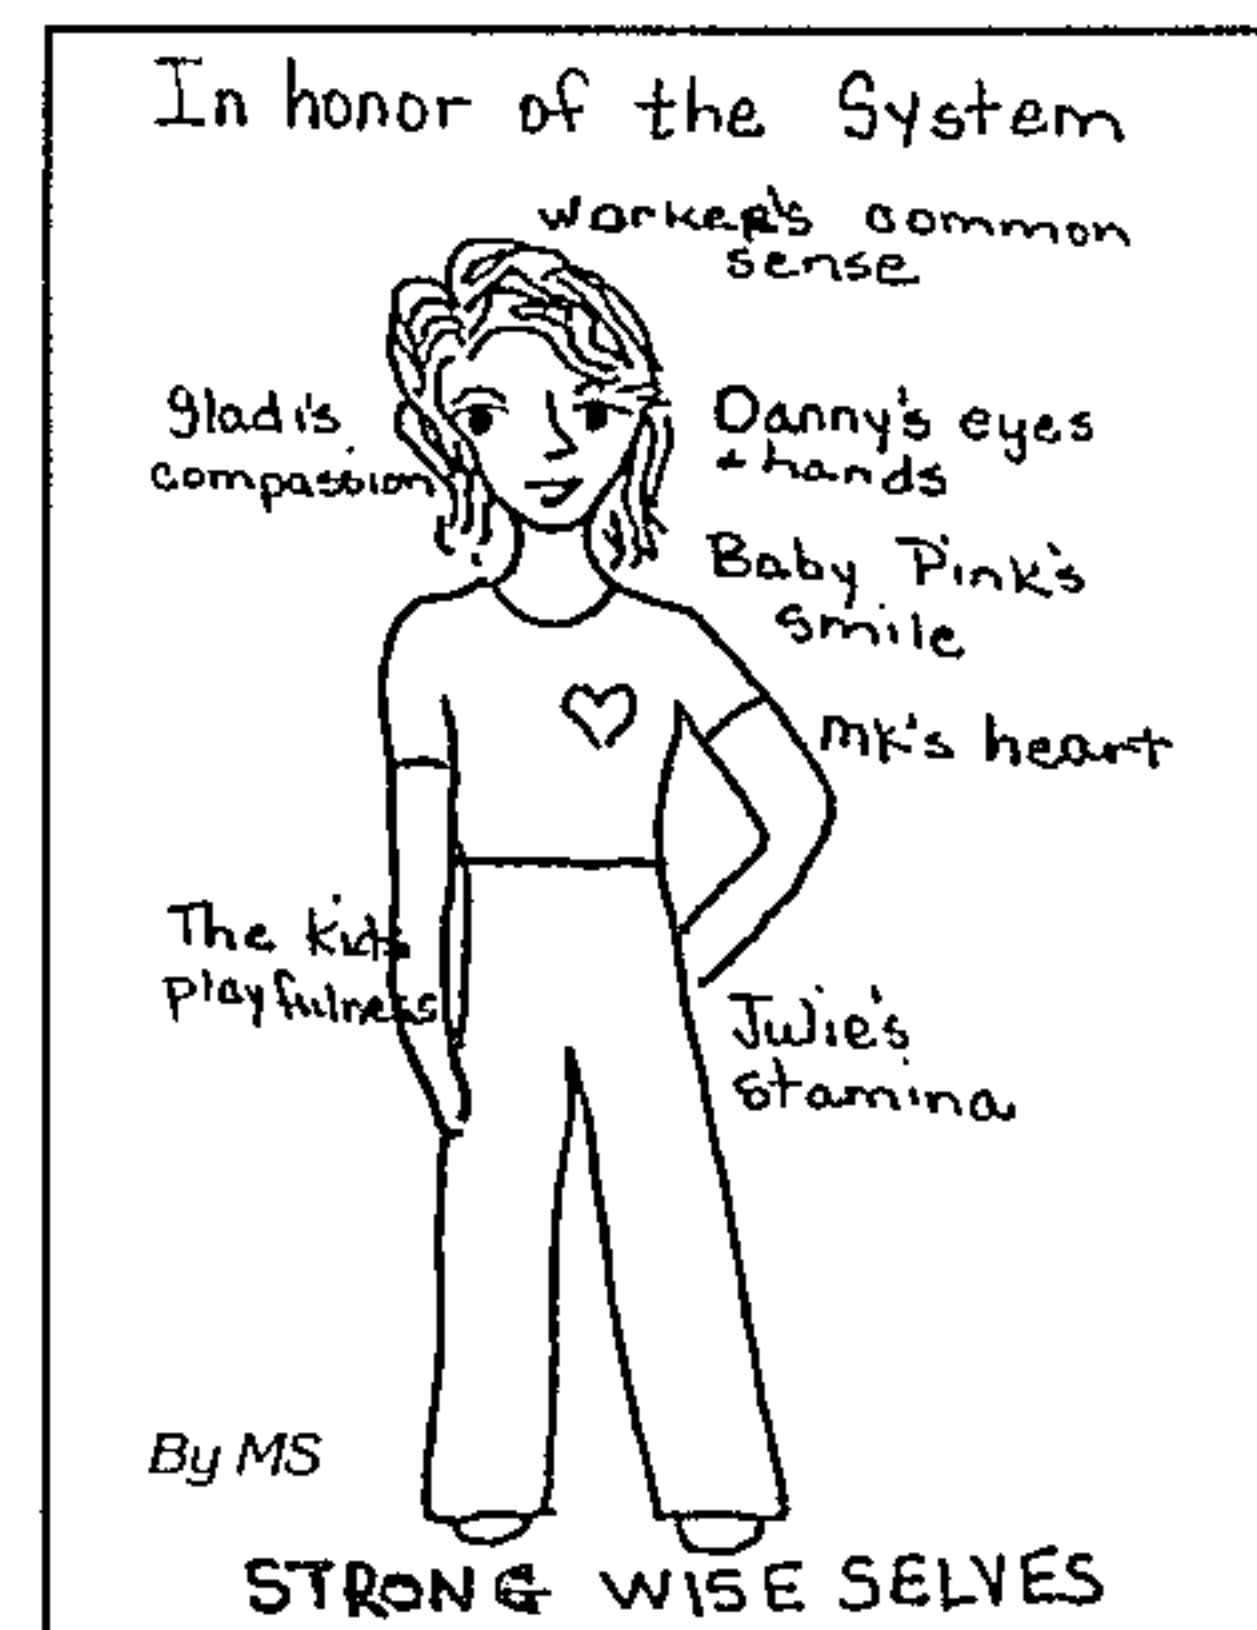 In honor of the System
worker's common
sense
gladi's
compassion
Danny's eyes
+ hands
Baby Pink's
smile
MK's heart
The kids
playfulness
Julie's
stamina
By MS
STRONG WISE SELVES